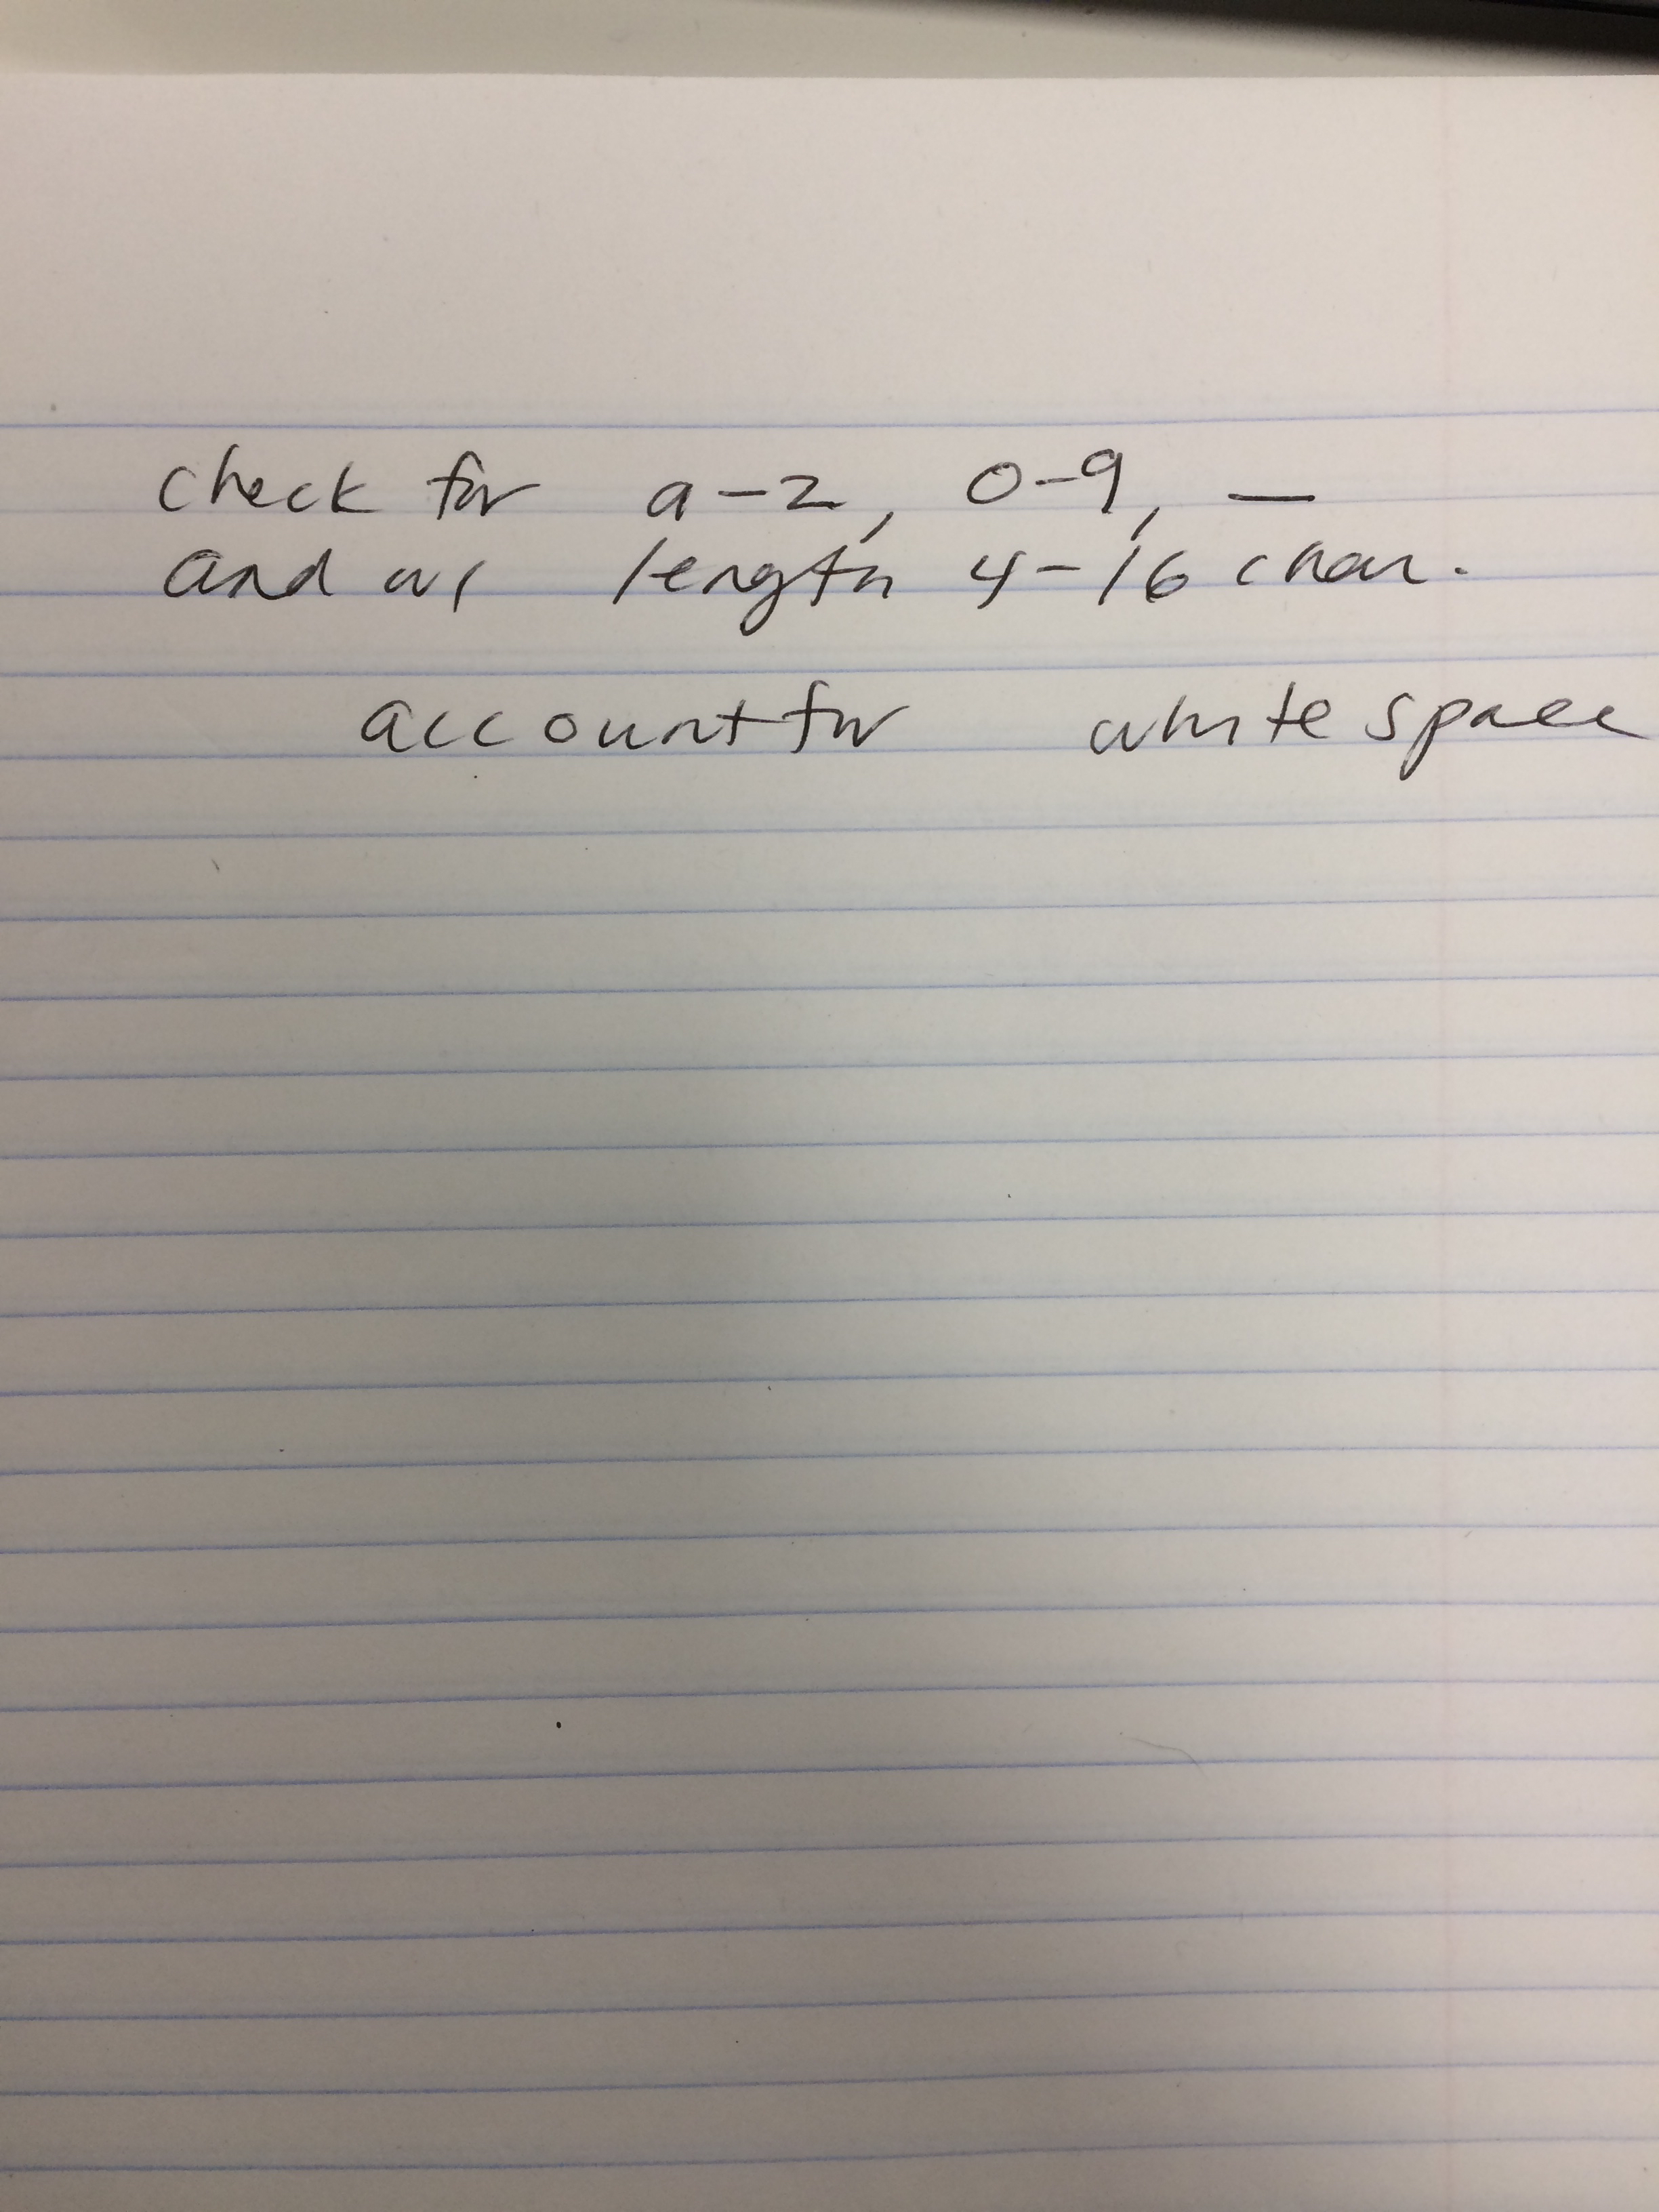 check for a-z, 0-9, _
and w/ length 4-16 char.
account for white space